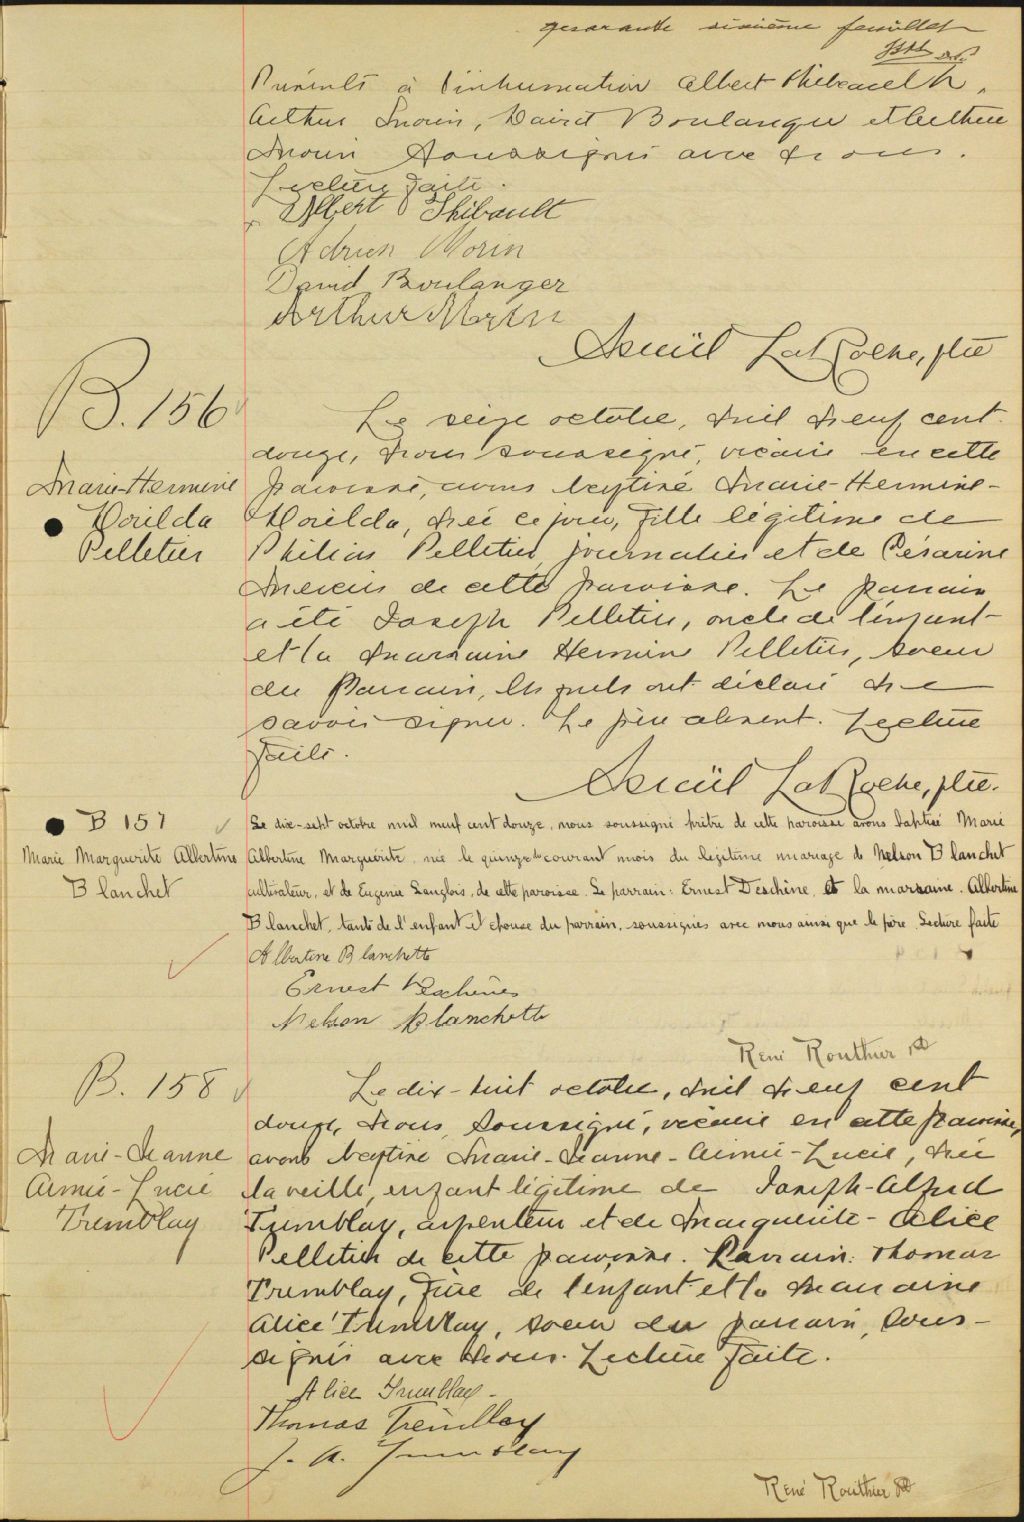 quarante sixième feuillet
Présents à l'inhumation Albert Thibeault,
Arthur Morin, David Boulanger et Arthur
Morin soussignés avec nous.
Lecture faite.
Albert Thibault
Adrien Morin
David Boulanger
Arthur Morin
LaRoche, ptre
B. 156
Marie-Hermine
Dorilda
Pelletier
Le seize octobre, mil neuf cent
douze, nous soussigné, vicaire en cette
paroisse, avons baptisé Marie-Hermine-
Dorilda, née ce jour, fille légitime de
Pelletier, journalier et de Césarine
Mercier de cette paroisse. Le parrain
a été Joseph Pelletier, oncle de l'enfant
et la marraine Hermine Pelletier, soeur
du Parrain, lesquels ont déclaré ne
savoir signer. Le père absent. Lecture
faite.
LaRoche, ptre.
B 157
Marie Marguerite Albertine
Blanchet
Le dix-sept octobre mil neuf cent douze, nous soussigné prêtre de cette paroisse avons baptisé Marie
Albertine Marguérite née le quinze du courant mois du légitime mariage de Nelson Blanchet
cultivateur, et de Eugénie Langlois, de cette paroisse. Le parrain: Ernest Deschêne et la marraine. Albertine
Blanchet, tante de l'enfant et épouse du parrain, soussignés avec nous ainsi que le père Lecture faite
Albertine Blanchette
Ernest Deschênes
Nelson Blanchette
René Routhier ptre
B. 158
Marie-Jeanne
Aimée-Lucie
Tremblay
Le dix-huit octobre, mil neuf cent
douze, nous soussigné, vicaire en cette paroisse,
avons baptisé Marie-Jeanne-Aimée-Lucie, née
la veille, enfant légitime de Joseph-Alfred
Tremblay, arpenteur et de Marguerite-Alice
Pelletier de cette paroisse. Parrain: Thomas
Tremblay, frère de l'enfant et la marraine
Alice Tremblay, soeur du parrain, sous-
signés avec nous. Lecture faite.
Alice Tremblay-
Thomas Tremblay
J. A. Tremblay
René Routhier ptre